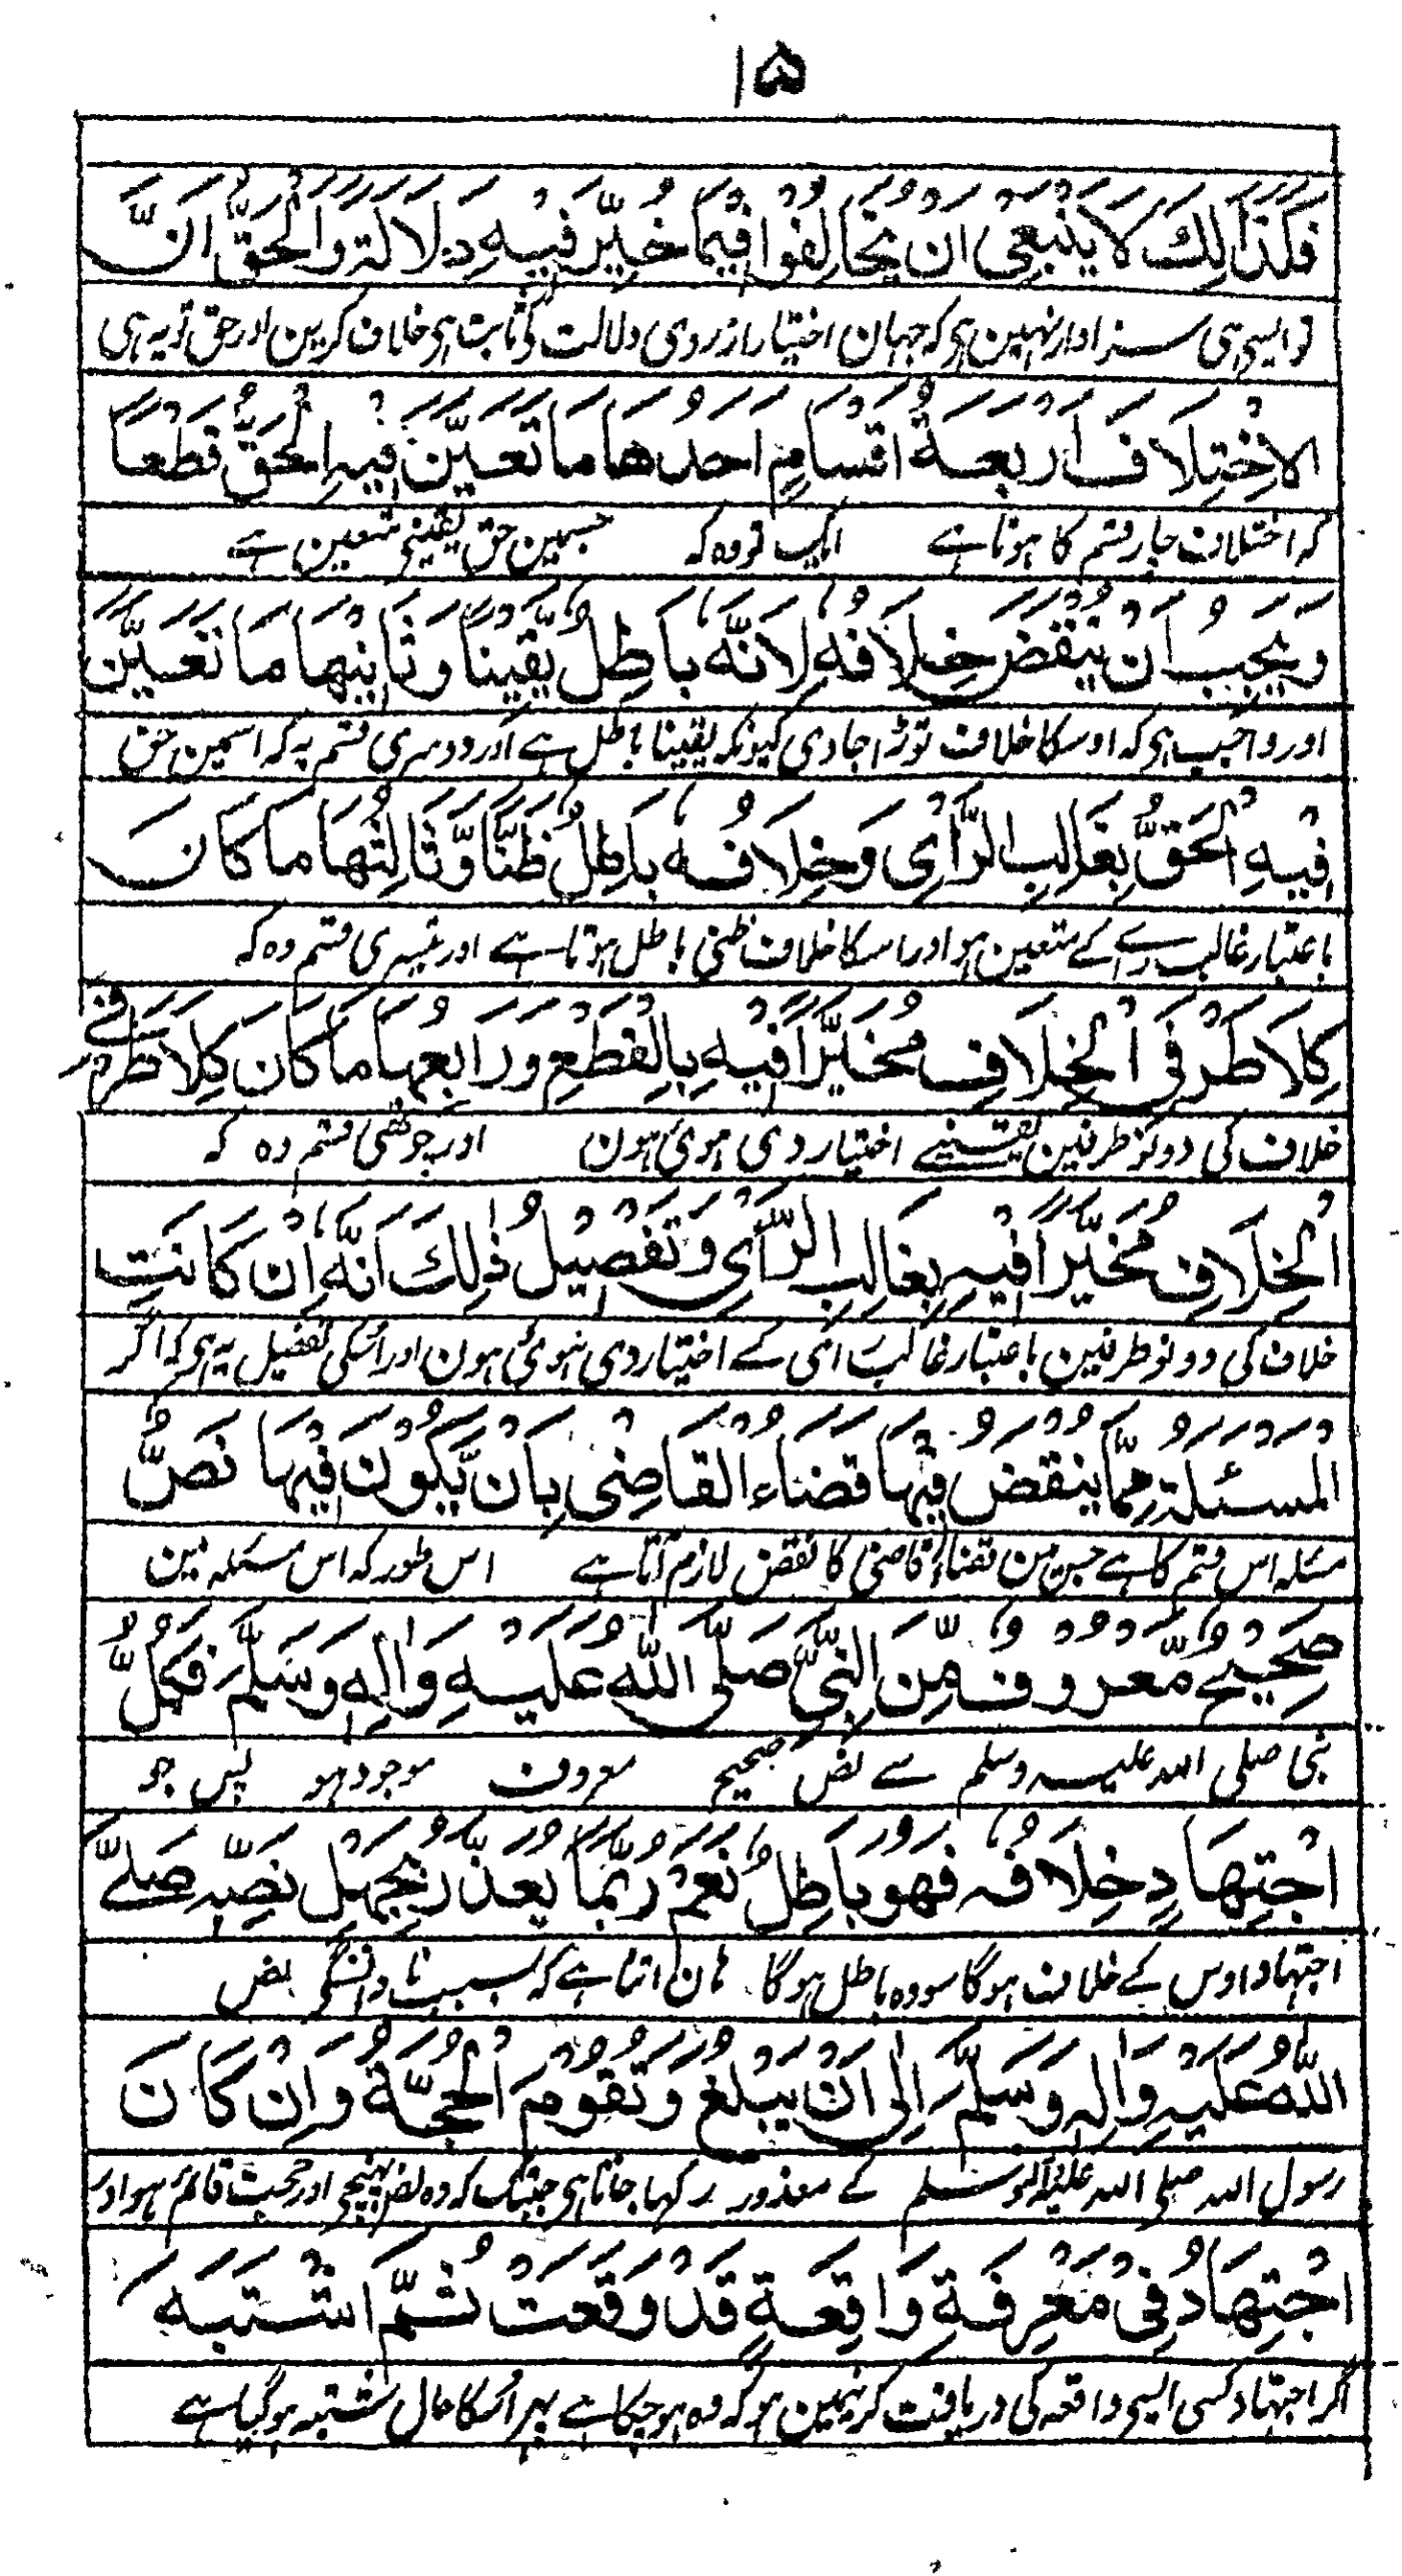 ۱۵
فَكَذٰلِكَ لَا يَنْبَغِىْ اَنْ يُّخَالِفُوْا فِيْمَا خُيِّرَ فِيْهِ دَلَالَةً وَالْحَقُّ اَنَّ
تو ایسی ہی سزاوار نہین ہی کہ جہان اختیار از روی دلالت کی ثابت ہی خلاف کرین اور حق تو یہ ہی
الْاِخْتِلَافَ اَرْبَعَةُ اَقْسَامٍ اَحَدُهَا مَا تَعَيَّنَ فِيْهِ الْحَقُّ قَطْعًا
کہ اختلاف چار قسم کا ہوتا ہے ایک تو وہ کہ جسمین حق یقینی متعین ہے
وَيَجِبُ اَنْ يُّنْقَضَ خِلَافُهٗ لِاَنَّهٗ بَاطِلٌ يَّقِيْنًا وَثَانِيْهَا مَا تَعَيَّنَ
اور واجب ہی کہ اوسکا خلاف توڑا جاوی کیونکہ یقینا باطل ہے اور دوسری قسم یہ کہ اسمین حق
فِيْهِ الْحَقُّ بِغَالِبِ الرَّأْىِ وَخِلَافُهٗ بَاطِلٌ ظَنًّا وَّثَالِثُهَا مَا كَانَ
باعتبار غالب راے کے متعین ہو اور اسکا خلاف ظنی باطل ہوتا ہے اور تیسری قسم وہ کہ
كِلَا طَرَفَىِ الْخِلَافِ مُخَيَّرًا فِيْهِ بِالْقَطْعِ وَرَابِعُهَا مَا كَانَ كِلَا طَرَفَىِ
خلاف کی دونو طرفین یقینے اختیار دی ہوئی ہون اور چوتھی قسم وہ کہ
الْخِلَافِ مُخَيَّرًا فِيْهِ بِغَالِبِ الرَّأْىِ وَتَفْصِيْلُ ذٰلِكَ اَنَّهٗ اِنْ كَانَتِ
خلاف کی دونو طرفین باعتبار غالب رای کے اختیار دی ہوئی ہون اور اسکی تفصیل یہ ہی کہ اگر
الْمَسْئَلَةُ مِمَّا يُنْقَضُ فِيْهَا قَضَاءُ الْقَاضِىْ بِاَنْ يَّكُوْنَ فِيْهَا نَصٌّ
مسئلہ اس قسم کا ہے جس مین قضاء قاضی کا نقض لازم آتا ہے اس طور کہ اس مسئلہ مین
صَحِيْحٌ مَّعْرُوْفٌ مِّنَ النَّبِىِّ صَلَّى اللّٰهُ عَلَيْهِ وَاٰلِهٖ وَسَلَّمَ فَكُلُّ
نبی صلی اللہ علیہ وسلم سے نص صحیح معروف موجود ہو پس جو
اجْتِهَادٍ خِلَافُهٗ فَهُوَ بَاطِلٌ نَعَمْ رُبَّمَا يُعْذَرُ بِجَهْلِ نَصِّهٖ صَلَّى
اجتہاد اوس کے خلاف ہوگا سو وہ باطل ہوگا ہان اتنا ہے کہ بسبب نا دانستگی نص
اللّٰهُ عَلَيْهِ وَاٰلِهٖ وَسَلَّمَ اِلٰى اَنْ يَّبْلُغَ وَتَقُوْمَ الْحُجَّةُ وَاِنْ كَانَ
رسول اللہ صلی اللہ علیہ وآلہ وسلم کے معذور رکہا جاتا ہی جبتک کہ وہ نص پہنچی اور حجت قائم ہو اور
اجْتِهَادٌ فِىْ مَعْرِفَةِ وَاقِعَةٍ قَدْ وَقَعَتْ ثُمَّ اشْتَبَهَ
اگر اجتہاد کسی ایسی واقعہ کی دریافت کرنیمین ہو کہ وہ ہو چکا ہے پہر اسکا حال مشتبہ ہوگیا ہے